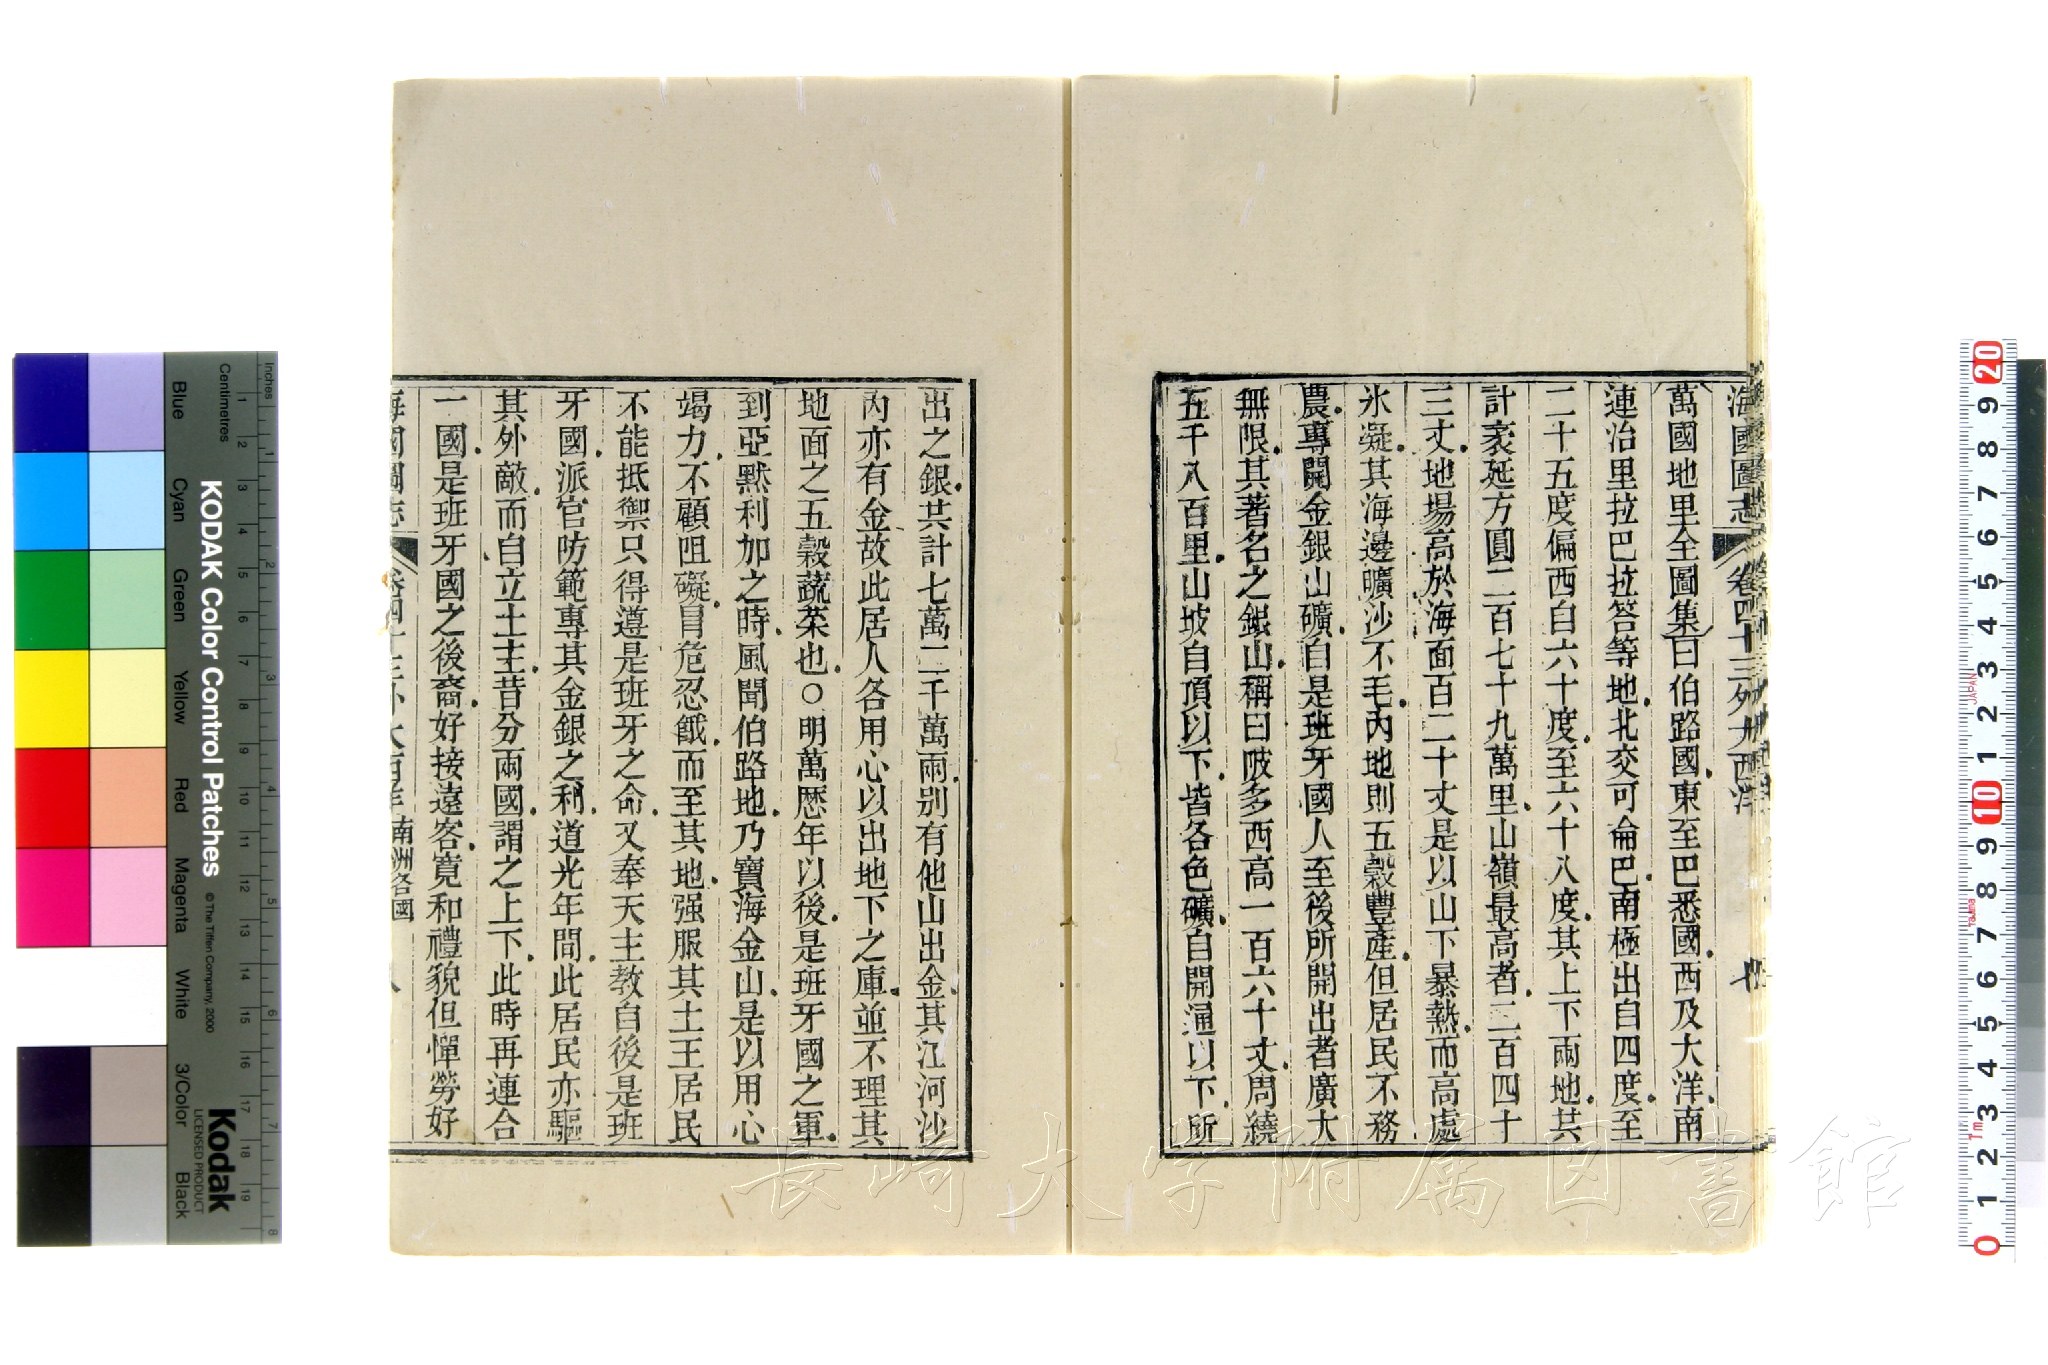 海國圖志 卷四十三外大西洋 七
萬國地里全圖集曰伯路國東至巴悉國西及大洋南
連治里拉巴拉答等地北交可侖巴南極出自四度至
二十五度偏西自六十度至六十八度其上下兩地共
計袤延方圓二百七十九萬里山嶺最高者二百四十
三丈地場高於海面百二十丈是以山下暴熱而高處
氷凝其海邊曠沙不毛內地則五穀豐產但居民不務
農專開金銀山礦自是班牙國人至後所開出者廣大
無限其著名之銀山稱曰陂多西高一百六十丈周繞
五千八百里山坡自頂以下皆各色礦自開通以下所
出之銀共計七萬二千萬兩别有他山出金其江河沙
內亦有金故此居人各用心以出地下之庫並不理其
地面之五穀蔬菜也○明萬歷年以後是班牙國之軍
到亞黙利加之時風聞伯路地乃寶海金山是以用心
竭力不顧阻礙冒危忍餓而至其地强服其土王居民
不能抵禦只得遵是班牙之命又奉天主教自後是班
牙國派官防範專其金銀之利道光年間此居民亦驅
其外敵而自立土主昔分兩國謂之上下此時再連合
一國是班牙國之後裔好接遠客寬和禮貌但憚勞好
海國圖志 卷四十三外大西洋 南洲各國 八
KODAK Color Control Patches
© The Tiffen Company, 2000
Kodak
LICENSED PRODUCT
Inches
Centimetres
Blue
Cyan
Green
Yellow
Red
Magenta
White
3/Color
Black
1 2 3 4 5 6 7 8 9 10 11 12 13 14 15 16 17 18 19
1 2 3 4 5 6 7 8
20 9 8 7 6 5 4 3 2 1 10 9 8 7 6 5 4 3 2 1 0
JAPAN
長崎大学附属図書館